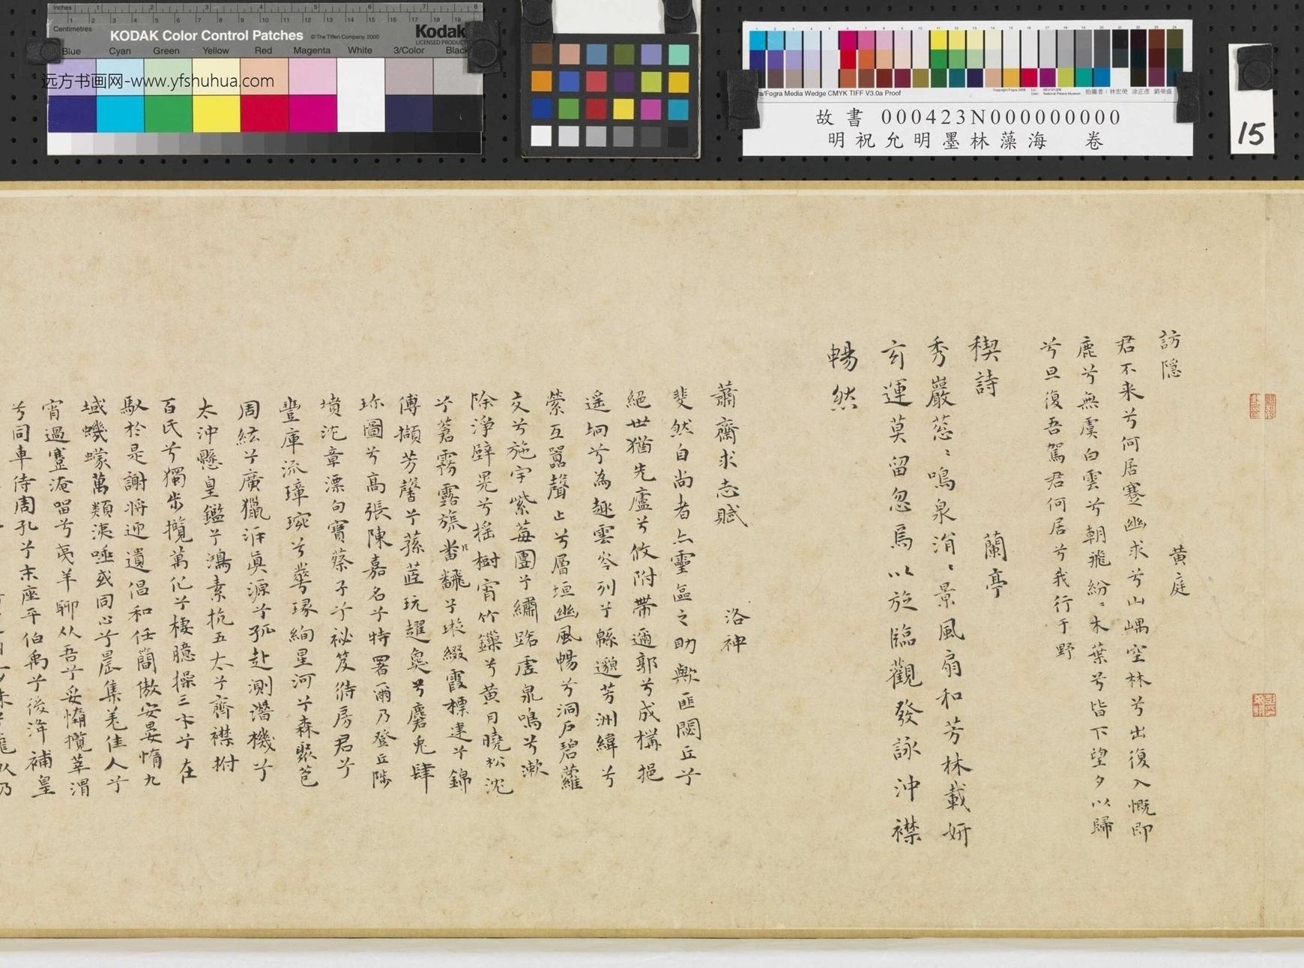 Inches
Centimetres
KODAK Color Control Patches
© The Tiffen Company, 2000
Kodak
LICENSED PRODUCT
Blue Cyan Green Yellow Red Magenta White 3/Color Black
远方书画网-www.yfshuhua.com
/Fogra Media Wedge CMYK TIFF V3.0a Proof
故書 000423N000000000
明祝允明墨林藻海 卷
15
訪隱 黃庭
君不来兮何居蹇幽求兮山嵎空林兮出復入慨即
鹿兮無虞白雲兮朝飛紛〻木葉兮皆下望夕以歸
兮旦復吾駕君何居兮我行于野
禊詩 蘭亭
秀巖䓗〻鳴泉涓〻景風扇和芳林載妍
玄運莫留忽焉以旋臨觀發詠沖襟
暢然
蕭齋求志賦 洛神
斐然自尚者亾靈區之助歟匪闕丘兮
絕世猶先廬兮攸附帶通郭兮成構挹
遥坰兮為趣雲岑列兮緜邈芳洲緯兮
縈互嚣聲止兮層垣幽風暢兮洞戶碧蘿
交兮施宇紫莓團兮繡路虛泉鳴兮漱
除淨壁晃兮摇樹宵竹鏤兮黃月曉松沈
兮蒼霧露旗兮飜兮璇綴霞標達兮錦
傅擷芳馨兮蓀莚玩趯㚟兮麝兔肆
珎圖兮高張陳嘉名兮特署爾乃登丘陟
墳沱章漂句寶蔡子兮祕笈待房君兮
豊庫派璋琬兮彎琭絢星河兮森聚芭
周紘兮廣獵泝真源兮孤赴測潛機兮
太沖懸皇鑑兮鴻素抗五太兮齊襟拊
百氏兮獨步攬萬化兮棲臆操三才兮在
馭於是謝将迎遺倡和任蕳傲安晏惰九
域蠛蠓萬類洟唾或同心兮晨集羌佳人兮
宵過蹇淹留兮夷羊聊从吾兮妥惰攬莘渭
兮同車侍周孔兮末座平伯禹兮後洚補皇